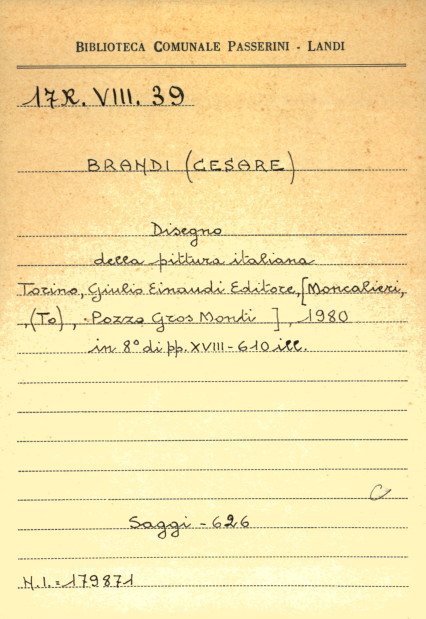 BIBLIOTECA COMUNALE PASSERINI - LANDI
17R. VIII. 39
BRANDI (CESARE)
Disegno
della pittura italiana
Torino, Giulio Einaudi Editore, [Moncalieri,
(To), Pozzo Gros Monti ], 1980
in 8° di pp. XVIII - 610 ill.
C
Saggi - 626
N.I.= 179871